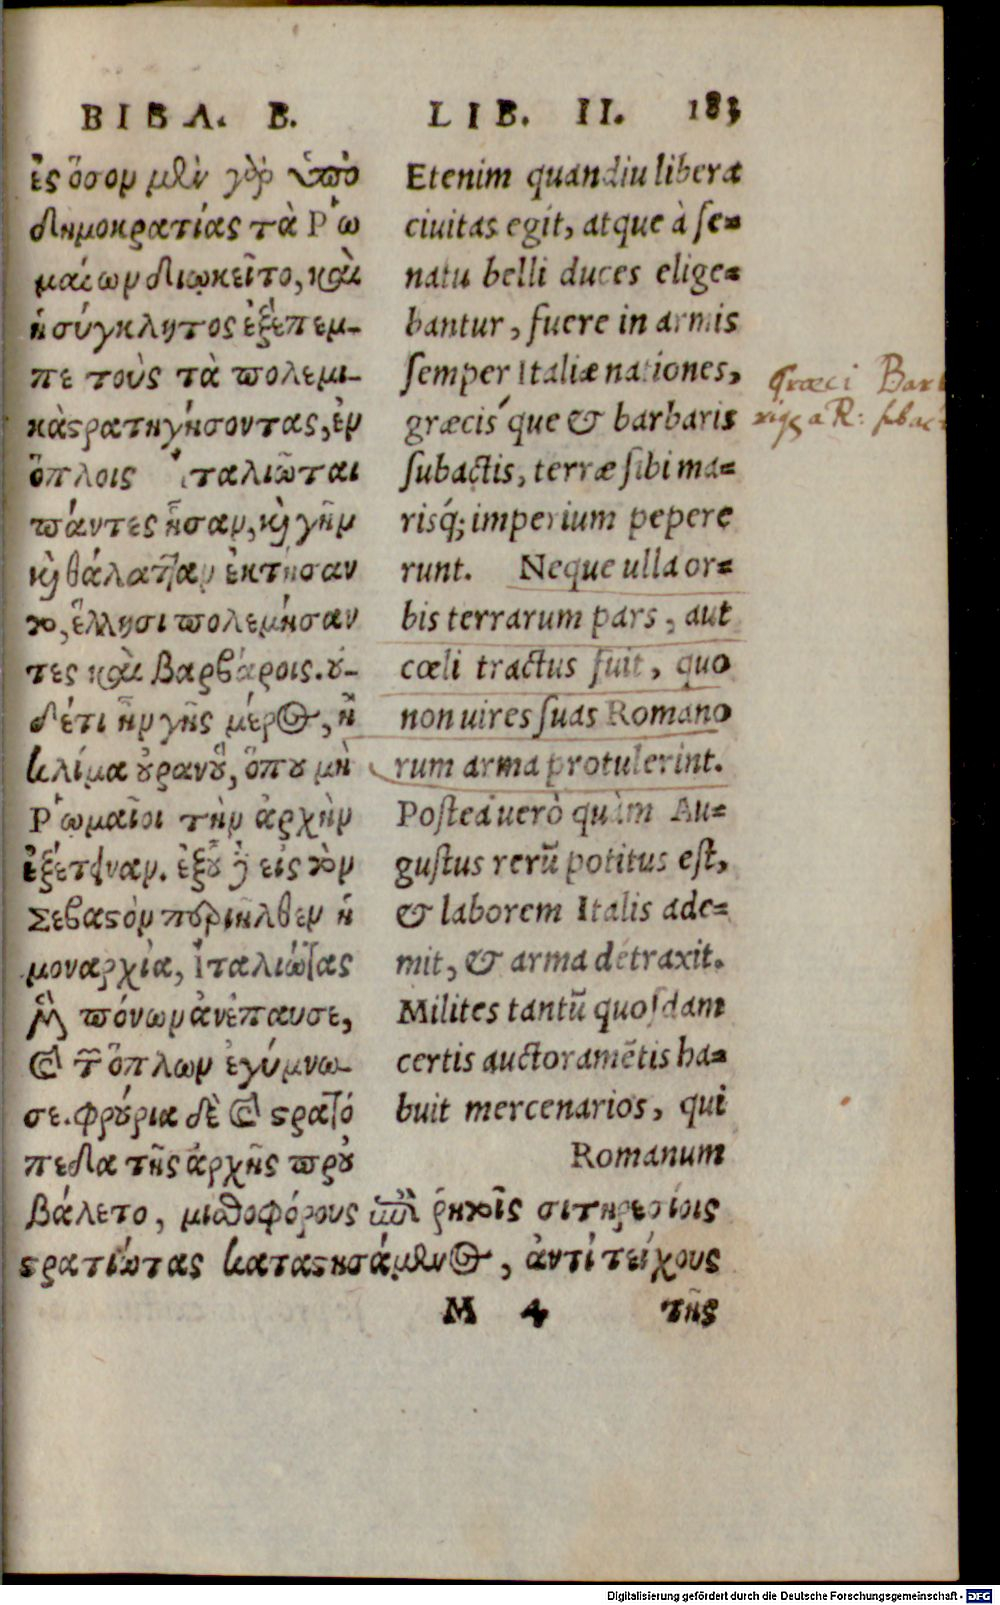 ΒΙΒΛ. Β.
ἐς ὅσον μὲν γὰρ ὑπὸ
δημοκρατίας τὰ Ῥω
μαίων διῳκεῖτο, καὶ
ἡ σύγκλητος ἐξέπεμ-
πε τοὺς τὰ πολεμι-
κὰ στρατηγήσοντας, ἐν
ὅπλοις Ἰταλιῶται
πάντες ἦσαν, καὶ γῆν
καὶ θάλατταν ἐκτήσαν
το, ἕλλησι πολεμήσαν
τες καὶ βαρβάροις. οὐ-
δέ τι ἦν γῆς μέρος, ἢ
κλίμα οὐρανοῦ, ὅπου μὴ
Ῥωμαῖοι τὴν ἀρχὴν
ἐξέτειναν. ἐξ οὗ δὲ εἰς τὸν
Σεβαστὸν περιῆλθεν ἡ
μοναρχία, Ἰταλιώτας
μὲν πόνων ἀνέπαυσε,
καὶ τῶν ὅπλων ἐγύμνω-
σε. φρούρια δὲ καὶ στρατό
πεδα τῆς ἀρχῆς προὐ
βάλετο, μισθοφόρους ἐπὶ ῥητοῖς σιτηρεσίοις
στρατιώτας καταστησάμενος, ἀντὶ τείχους
τῆς
LIB. II. 183
Etenim quandiu libera
ciuitas egit, atque à se-
natu belli duces elige-
bantur, fuere in armis
semper Italiæ nationes,
græcis que & barbaris
subactis, terræ sibi ma-
risq́; imperium pepere
runt. Neque ulla or-
bis terrarum pars, aut
cœli tractus fuit, quo
non uires suas Romano
rum arma protulerint.
Postea uerò quàm Au-
gustus rerū potitus est,
& laborem Italis ade-
mit, & arma detraxit.
Milites tantū quosdam
certis auctoramētis ha-
buit mercenarios, qui
Romanum
M 4
Græci Bar
a R:
Digitalisierung gefördert durch die Deutsche Forschungsgemeinschaft - DFG